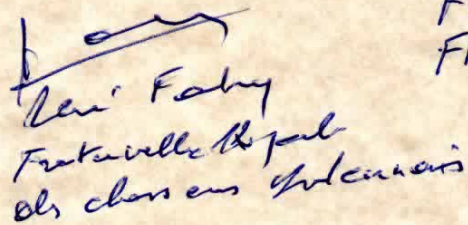 F
René Fabry
Fraternelle Royale
des chasseurs Ardennais